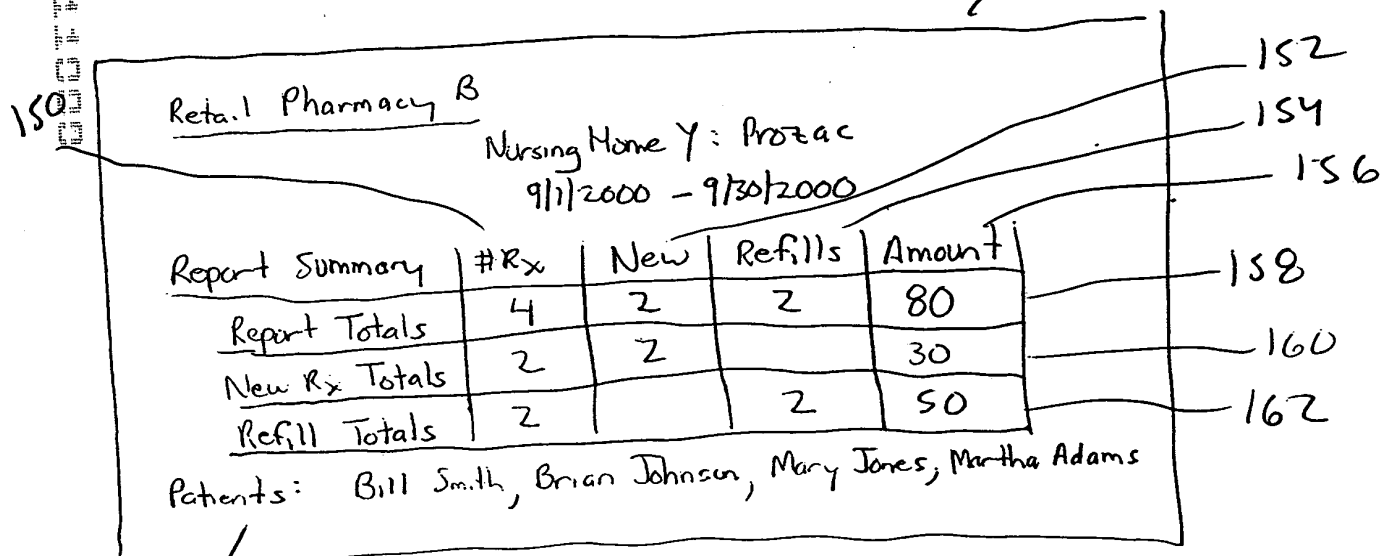 152
150
Retail Pharmacy B
154
Nursing Home Y: Prozac
156
9/1/2000 - 9/30/2000
Report Summary #Rx New Refills Amount
158
Report Totals 4 2 2 80
New Rx Totals 2 2 30
160
Refill Totals 2 2 50
162
Patients: Bill Smith, Brian Johnson, Mary Jones, Martha Adams